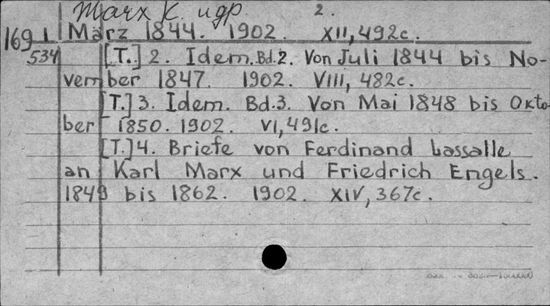 Marx K. и др. 2.
169 1 März 1844. 1902. XII, 492c.
534 [T.] 2. Idem. Bd.2. Von Juli 1844 bis No-
vember 1847. 1902. VIII, 482c.
[T.] 3. Idem. Bd.3. Von Mai 1848 bis Okto-
ber 1850. 1902. VI, 491c.
[T.] 4. Briefe von Ferdinand Lassalle
an Karl Marx und Friedrich Engels.
1849 bis 1862. 1902. XIV, 367c.